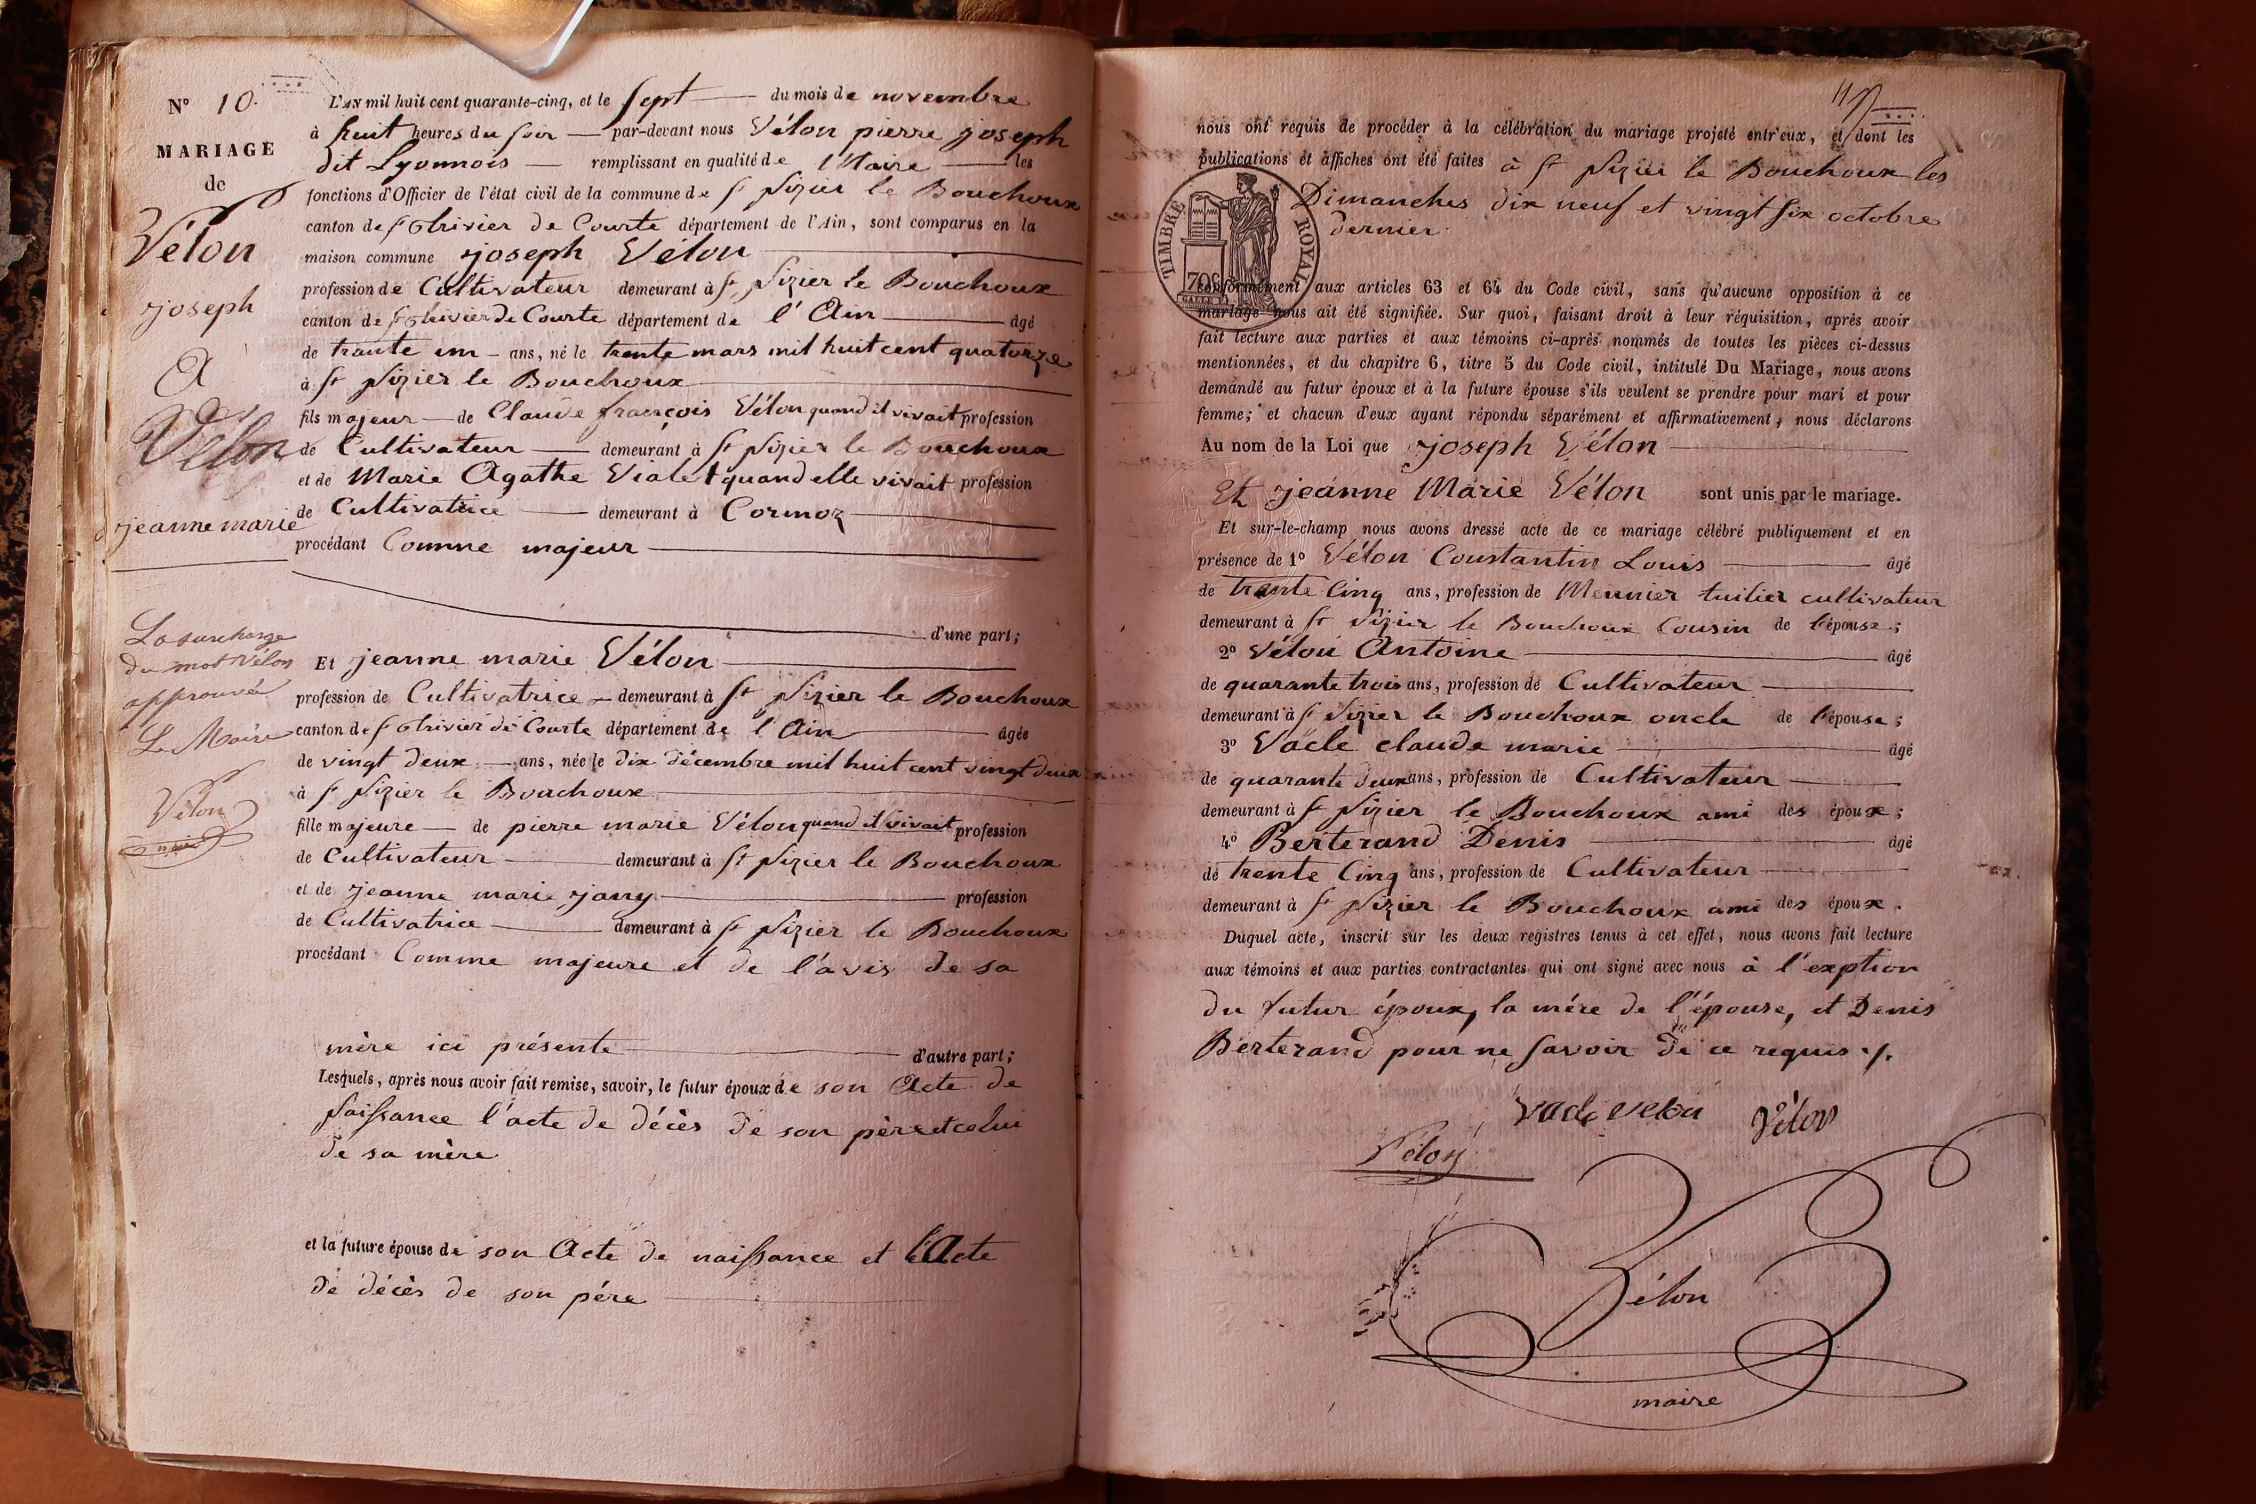 N° 10.
MARIAGE
de
Vélon
joseph
Et
Vélon
jeanne marie
La surcharge
du mot Vélon
approuvée
Le Maire
Vélon
maire
L'AN mil huit cent quarante-cinq, et le sept du mois de novembre
à huit heures du soir par-devant nous Vélon pierre joseph
dit Lyonnois remplissant en qualité de Maire les
fonctions d'Officier de l'état civil de la commune de St Nizier le Bouchoux
canton de St Trivier de Courte département de l'Ain, sont comparus en la
maison commune joseph Vélon
profession de Cultivateur demeurant à St Nizier le Bouchoux
canton de St Trivier de Courte département de l'Ain âgé
de trante un ans, né le trente mars mil huit cent quatorze
à St Nizier le Bouchoux
fils majeur de Claude françois Vélon quand il vivait profession
de Cultivateur demeurant à St Nizier le Bouchoux
et de Marie Agathe Vialet quand elle vivait profession
de Cultivatrice demeurant à Cormoz
procédant Comme majeur
d'une part;
Et jeanne marie Vélon
profession de Cultivatrice demeurant à St Nizier le Bouchoux
canton de St Trivier de Courte département de l'Ain âgée
de vingt deux ans, née le dix décembre mil huit cent vingt deux
à St Nizier le Bouchoux
fille majeure de pierre marie Vélon quand il vivait profession
de Cultivateur demeurant à St Nizier le Bouchoux
et de jeanne marie jany profession
de Cultivatrice demeurant à St Nizier le Bouchoux
procédant Comme majeure et de l'avis de sa
mère ici présente d'autre part;
Lesquels, après nous avoir fait remise, savoir, le futur époux de son Acte de
Naissance l'acte de décès de son père et celui
de sa mère
et la future épouse de son Acte de naissance et l'Acte
de décès de son père
nous ont requis de procéder à la célébration du mariage projeté entr'eux, et dont les
publications et affiches ont été faites à St Nizier le Bouchoux les
Dimanches dix neuf et vingt six octobre
dernier
TIMBRE ROYAL
70c
conformément aux articles 63 et 64 du Code civil, sans qu'aucune opposition à ce
mariage nous ait été signifiée. Sur quoi, faisant droit à leur réquisition, après avoir
fait lecture aux parties et aux témoins ci-après nommés de toutes les pièces ci-dessus
mentionnées, et du chapitre 6, titre 5 du Code civil, intitulé Du Mariage, nous avons
demandé au futur époux et à la future épouse s'ils veulent se prendre pour mari et pour
femme; et chacun d'eux ayant répondu séparément et affirmativement, nous déclarons
Au nom de la Loi que joseph Vélon
Et jeanne Marie Vélon sont unis par le mariage.
Et sur-le-champ nous avons dressé acte de ce mariage célébré publiquement et en
présence de 1° Vélon Constantin Louis âgé
de trente Cinq ans, profession de Meunier tuilier cultivateur
demeurant à St Nizier le Bouchoux Cousin de l'épouse;
2° Vélon Antoine âgé
de quarante trois ans, profession de Cultivateur
demeurant à St Nizier le Bouchoux oncle de l'épouse;
3° Vacle claude marie âgé
de quarante deux ans, profession de Cultivateur
demeurant à St Nizier le Bouchoux ami des époux;
4° Berterand Denis âgé
de trente Cinq ans, profession de Cultivateur
demeurant à St Nizier le Bouchoux ami des époux.
Duquel acte, inscrit sur les deux registres tenus à cet effet, nous avons fait lecture
aux témoins et aux parties contractantes qui ont signé avec nous à l'exption
du futur époux, la mére de l'épouse, et Denis
Berterand pour ne savoir de ce requis
vacle velon Vélon
Vélon
Vélon
maire